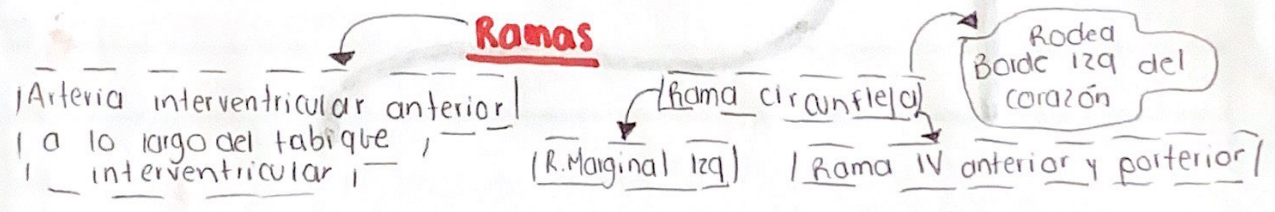 Ramas
Arteria interventricular anterior
a lo largo del tabique
interventricular
Rama circunfleja
Rodea
Borde izq del
corazón
R. Marginal Izq
Rama IV anterior y posterior